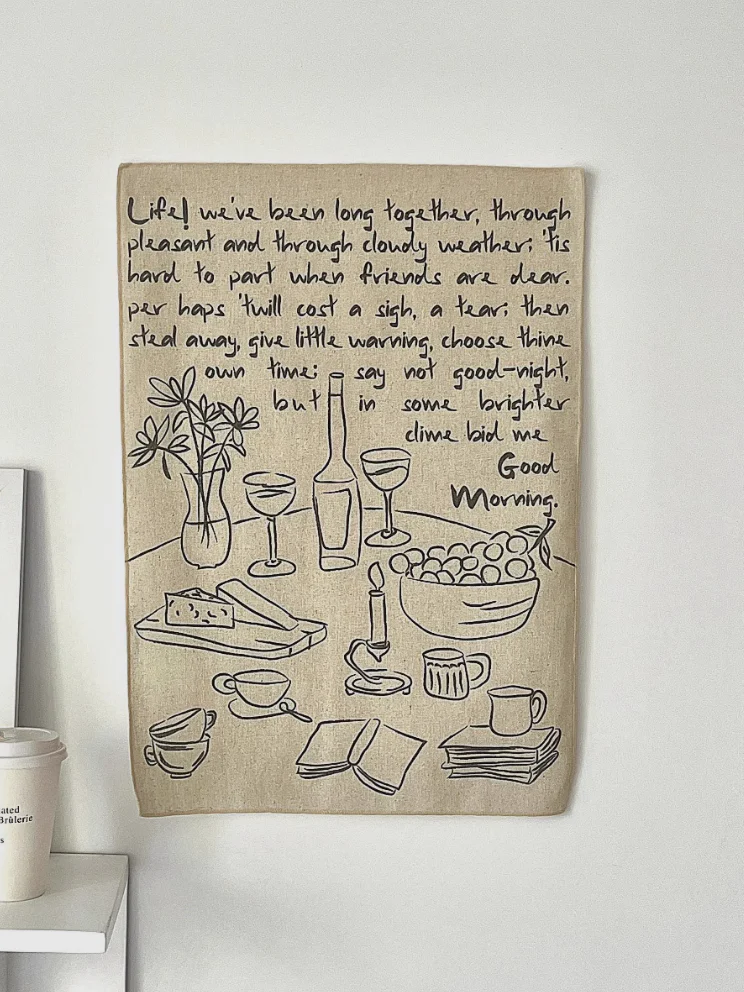 Life! we've been long together, through
pleasant and through cloudy weather; 'tis
hard to part when friends are dear.
per haps 'twill cost a sigh, a tear; then
steal away, give little warning, choose thine
own time; say not good-night,
but in some brighter
clime bid me
Good
Morning.
ated
Brûlerie
s